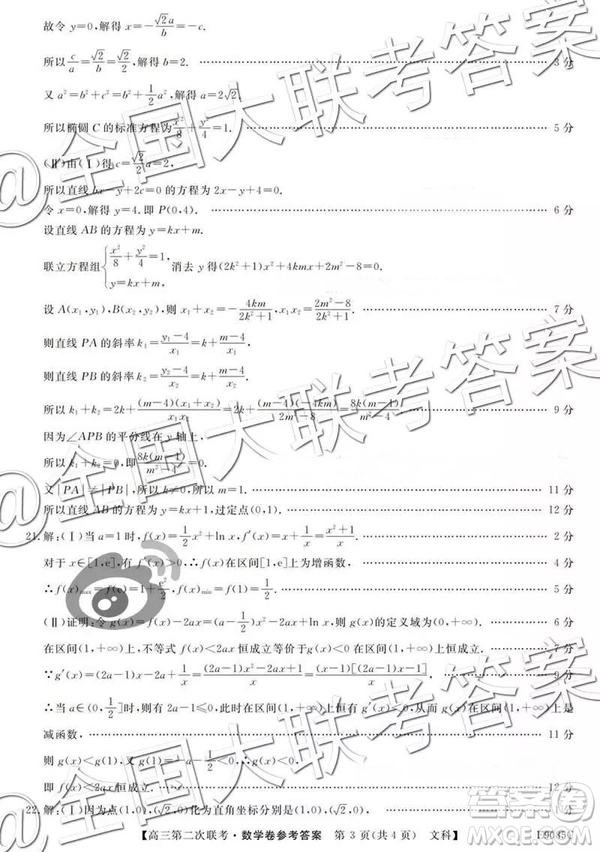 故令 y=0,解得 x=-√2a/b=-c.
所以 c/a=√2/b=√2/2,解得 b=2. 3 分
又 a²=b²+c²=b²+1/2a²,解得 a=2√2.
所以椭圆 C 的标准方程为 x²/8+y²/4=1. 5 分
(Ⅱ)由(Ⅰ)得 c=√2/2 a=2,
所以直线 bx-y+2c=0 的方程为 2x-y+4=0.
令 x=0,解得 y=4.即 P(0,4). 6 分
设直线 AB 的方程为 y=kx+m.
联立方程组{x²/8+y²/4=1, y=kx+m. 消去 y 得(2k²+1)x²+4kmx+2m²-8=0.
设 A(x₁,y₁),B(x₂,y₂),则 x₁+x₂=-4km/2k²+1,x₁x₂=2m²-8/2k²+1. 7 分
则直线 PA 的斜率 k₁=y₁-4/x₁=k+m-4/x₁.
则直线 PB 的斜率 k₂=y₂-4/x₂=k+m-4/x₂.
所以 k₁+k₂=2k+(m-4)(x₁+x₂)/x₁x₂=2k+(m-4)(-4km)/2m²-8=8k(m-1)/ 9 分
因为∠APB 的平分线在 y 轴上,
所以 k₁+k₂=0,即 8k(m-1)/ =0.
又|PA|≠|PB|,所以 k≠0,所以 m=1. 11 分
所以直线 AB 的方程为 y=kx+1,过定点(0,1). 12 分
21.解:(Ⅰ)当 a=1 时,f(x)=1/2x²+ln x,f′(x)=x+1/x=x²+1/x. 2 分
对于 x∈[1,e],有 f′(x)>0,∴f(x)在区间[1,e]上为增函数,
∴f(x)max=f(e)=1+e²/2,f(x)min=f(1)=1/2. 5 分
(Ⅱ)证明:令 g(x)=f(x)-2ax=(a-1/2)x²-2ax+ln x,则 g(x)的定义域为(0,+∞).
在区间(1,+∞)上,不等式 f(x)<2ax 恒成立等价于 g(x)<0 在区间(1,+∞)上恒成立.
∵g′(x)=(2a-1)x-2a+1/x=(2a-1)x²-2ax+1/x=(x-1)[(2a-1)x-1]/x, 9 分
∴当 a∈(0,1/2]时,有 2a-1≤0,此时在区间(1,+∞)上恒有 g′(x)<0,从而 g(x)在区间(1,+∞)上是
减函数, 11 分
则 g(x)<g(1)=-a-1/2<0,
即 f(x)<2ax 恒成立. 12 分
22.解:(Ⅰ)因为点(1,0),(√2,0)化为直角坐标分别是(1,0),(√2,0).
【高三第二次联考·数学卷参考答案 第 3 页(共 4 页) 文科】
@全国大联考答案
@全国大联考答案